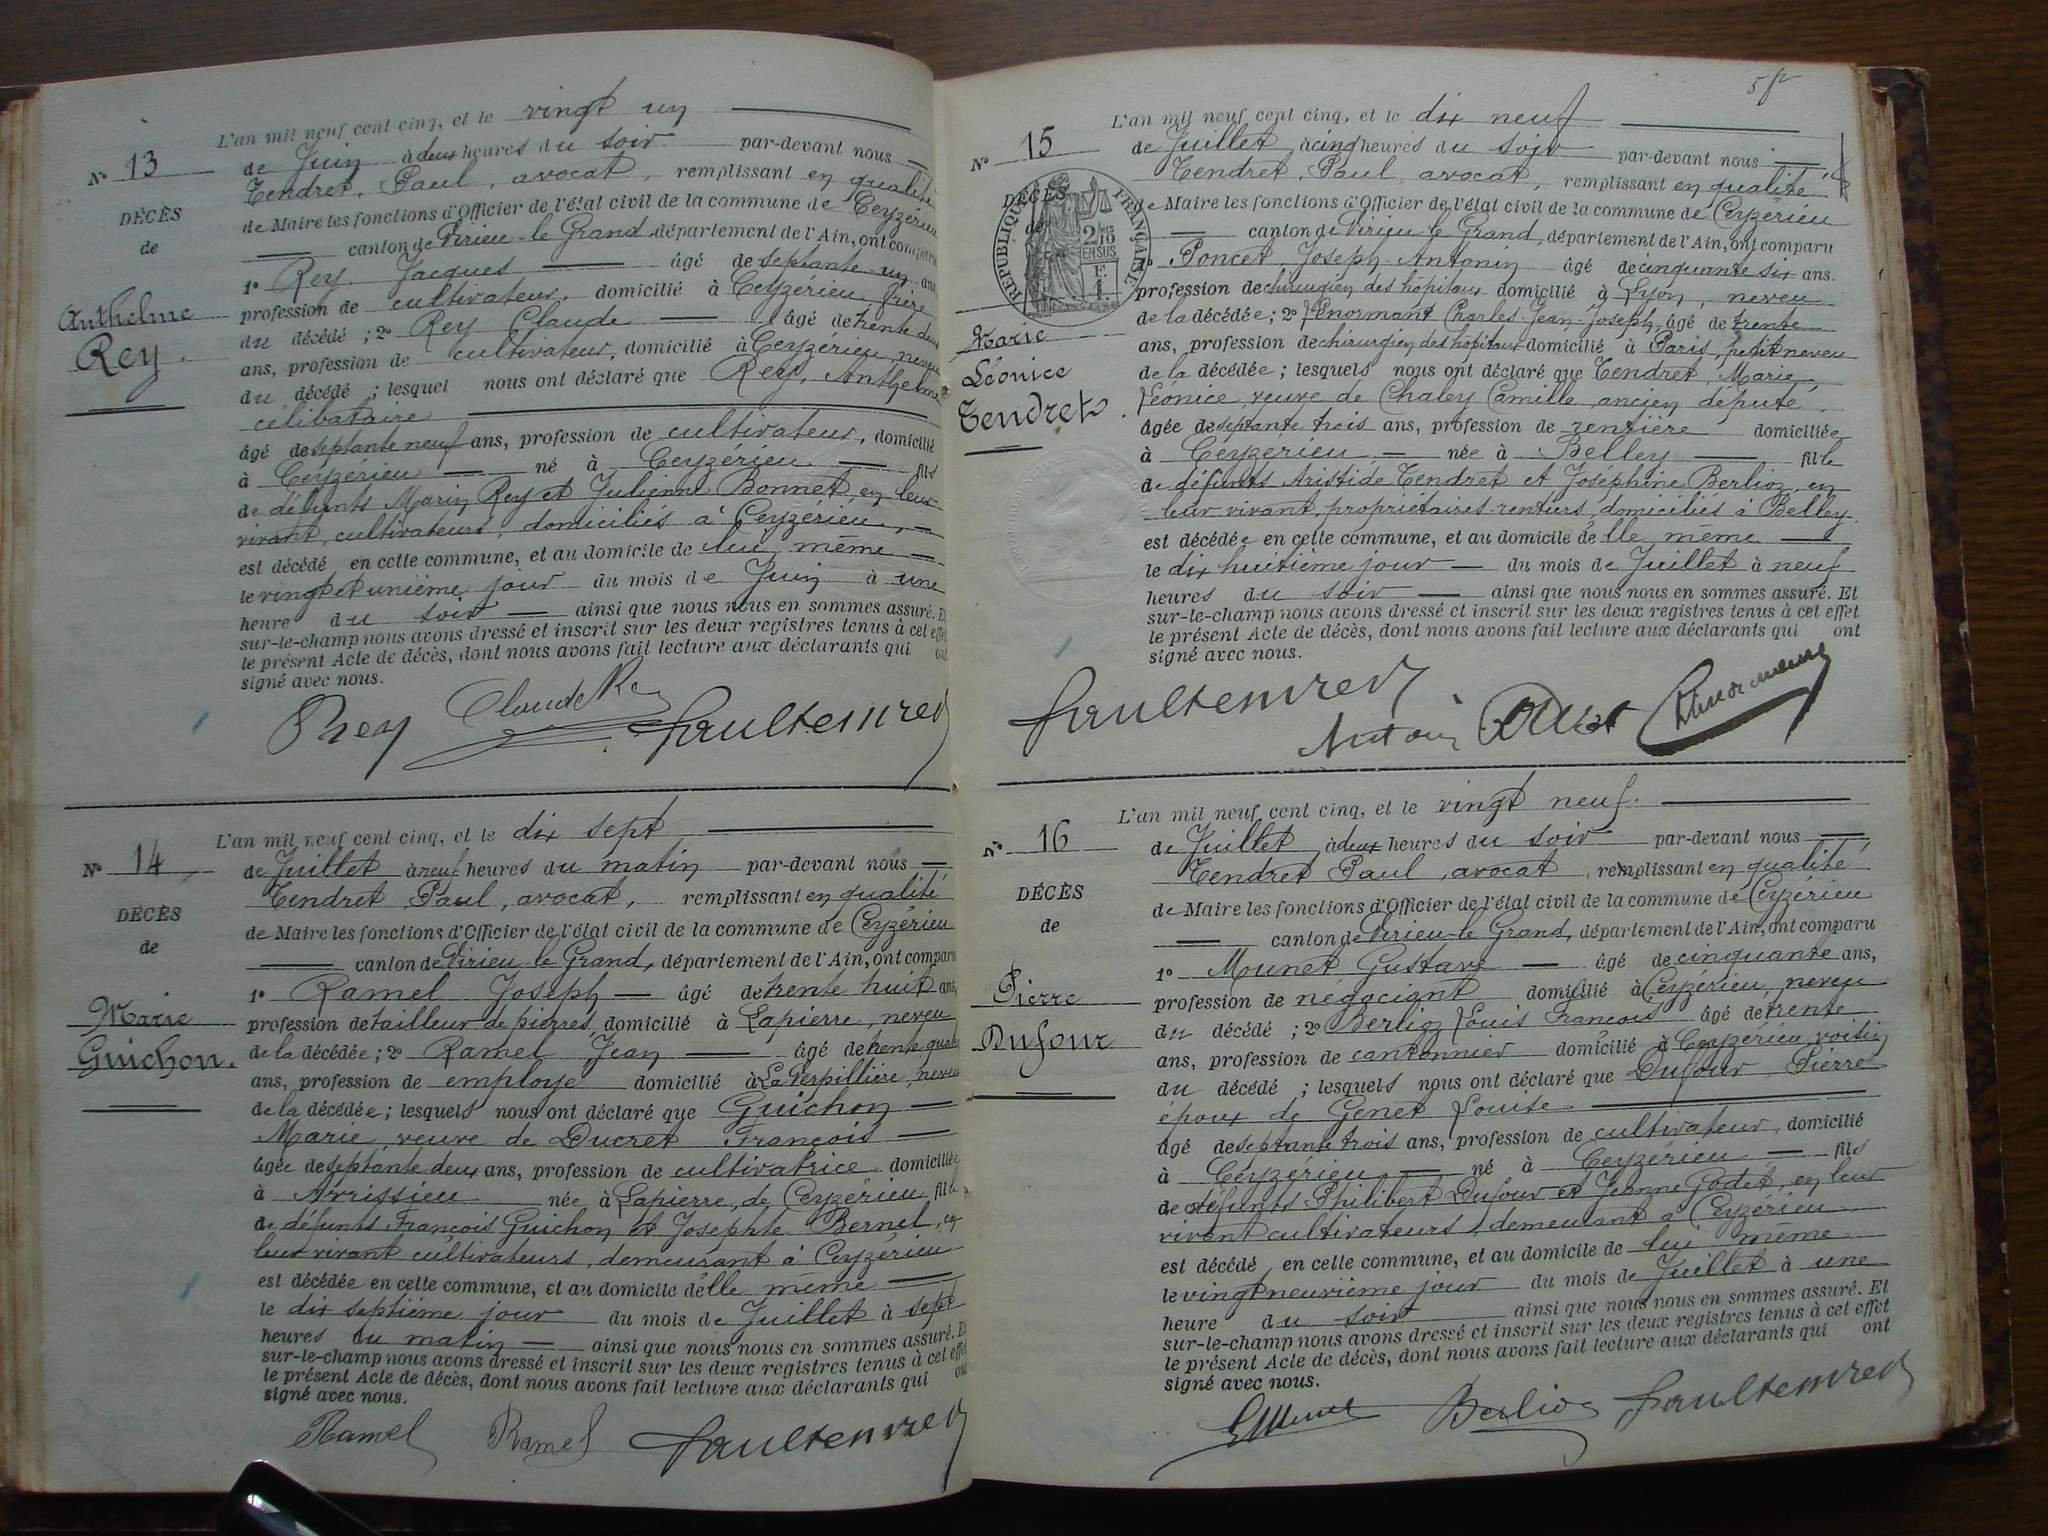 N° 13
DÉCÈS
de
Anthelme
Rey.
L'an mil neuf cent cinq, et le vingt un
de Juin à deux heures du soir par-devant nous
Tendret, Paul, avocat, remplissant en qualité
de Maire les fonctions d'Officier de l'état civil de la commune de Ceyzérieu
canton de Virieu-le-Grand, département de l'Ain, ont comparu
1° Rey, Jacques âgé de septante un ans
profession de cultivateur, domicilié à Ceyzérieu, frère
du décédé ; 2° Rey Claude âgé de trente deux
ans, profession de cultivateur, domicilié à Ceyzérieu, neveu
du décédé ; lesquels nous ont déclaré que Rey, Anthelme
célibataire
âgé de septante neuf ans, profession de cultivateur, domicilié
à Ceyzérieu né à Ceyzérieu fils
de défunts Marin Rey et Julienne Bonnet, en leur
vivant, cultivateurs, domiciliés à Ceyzérieu,
est décédé en cette commune, et au domicile de lui même
le vingt et unième jour du mois de Juin à une
heure du soir ainsi que nous nous en sommes assuré. Et
sur-le-champ nous avons dressé et inscrit sur les deux registres tenus à cet effet
le présent Acte de décès, dont nous avons fait lecture aux déclarants qui ont
signé avec nous.
Rey Claude Rey Paul Tendret
N° 14
DÉCÈS
de
Marie
Guichon.
L'an mil neuf cent cinq, et le dix sept
de Juillet à neuf heures du matin par-devant nous
Tendret, Paul, avocat, remplissant en qualité
de Maire les fonctions d'Officier de l'état civil de la commune de Ceyzérieu
canton de Virieu-le-Grand, département de l'Ain, ont comparu
1° Ramel Joseph âgé de trente huit ans,
profession de tailleur de pierres, domicilié à Lapierre, neveu
de la décédée ; 2° Ramel Jean âgé de trente quatre
ans, profession de employé domicilié à La Verpillière, neveu
de la décédée ; lesquels nous ont déclaré que Guichon
Marie, veuve de Ducret François
âgée de septante deux ans, profession de cultivatrice domiciliée
à Avrissieu née à Lapierre, de Ceyzérieu, fille
de défunts François Guichon et Josephte Bernel, en
leur vivant cultivateurs, demeurant à Ceyzérieu
est décédée en cette commune, et au domicile d'elle même
le dix septième jour du mois de Juillet à sept
heures du matin ainsi que nous nous en sommes assuré. Et
sur-le-champ nous avons dressé et inscrit sur les deux registres tenus à cet effet
le présent Acte de décès, dont nous avons fait lecture aux déclarants qui ont
signé avec nous.
Ramel Ramel Paul Tendret
N° 15
DÉCÈS
de
RÉPUBLIQUE FRANÇAISE
2/10 EN SUS
Marie
Léonice
Tendret.
L'an mil neuf cent cinq, et le dix neuf
de Juillet à cinq heures du soir par-devant nous
Tendret, Paul, avocat, remplissant en qualité
de Maire les fonctions d'Officier de l'état civil de la commune de Ceyzérieu
canton de Virieu-le-Grand, département de l'Ain, ont comparu
1° Poncet, Joseph-Antonin âgé de cinquante six ans.
profession de chirurgien des hôpitaux domicilié à Lyon, neveu
de la décédée ; 2° Lenormant Charles-Jean-Joseph, âgé de trente
ans, profession de chirurgien des hôpitaux domicilié à Paris, petit neveu
de la décédée ; lesquels nous ont déclaré que Tendret, Marie,
Léonice, veuve de Chaley Camille, ancien député,
âgée de septante trois ans, profession de rentière domiciliée
à Ceyzérieu née à Belley fille
de défunts Aristide Tendret et Joséphine Berlioz, en
leur vivant, propriétaires-rentiers, domiciliés à Belley,
est décédée en cette commune, et au domicile d'elle même
le dix huitième jour du mois de Juillet à neuf
heures du soir ainsi que nous nous en sommes assuré. Et
sur-le-champ nous avons dressé et inscrit sur les deux registres tenus à cet effet
le présent Acte de décès, dont nous avons fait lecture aux déclarants qui ont
signé avec nous.
Paul Tendret
Antonin Poncet Lenormant
N° 16
DÉCÈS
de
Pierre
Dufour
L'an mil neuf cent cinq, et le vingt neuf.
de Juillet à deux heures du soir par-devant nous
Tendret Paul, avocat, remplissant en qualité
de Maire les fonctions d'Officier de l'état civil de la commune de Ceyzérieu
canton de Virieu-le-Grand, département de l'Ain, ont comparu
1° Mounet Gustave âgé de cinquante ans,
profession de négociant domicilié à Ceyzérieu, neveu
du décédé ; 2° Berlioz Louis François âgé de trente
ans, profession de cantonnier domicilié à Ceyzérieu, voisin
du décédé ; lesquels nous ont déclaré que Dufour Pierre
époux de Genet Louise
âgé de septante trois ans, profession de cultivateur, domicilié
à Ceyzérieu né à Ceyzérieu fils
de défunts Philibert Dufour et Jeanne Godet, en leur
vivant cultivateurs, demeurant à Ceyzérieu
est décédé en cette commune, et au domicile de lui même
le vingt neuvième jour du mois de Juillet à une
heure du soir ainsi que nous nous en sommes assuré. Et
sur-le-champ nous avons dressé et inscrit sur les deux registres tenus à cet effet
le présent Acte de décès, dont nous avons fait lecture aux déclarants qui ont
signé avec nous.
GMounet Berlioz Paul Tendret